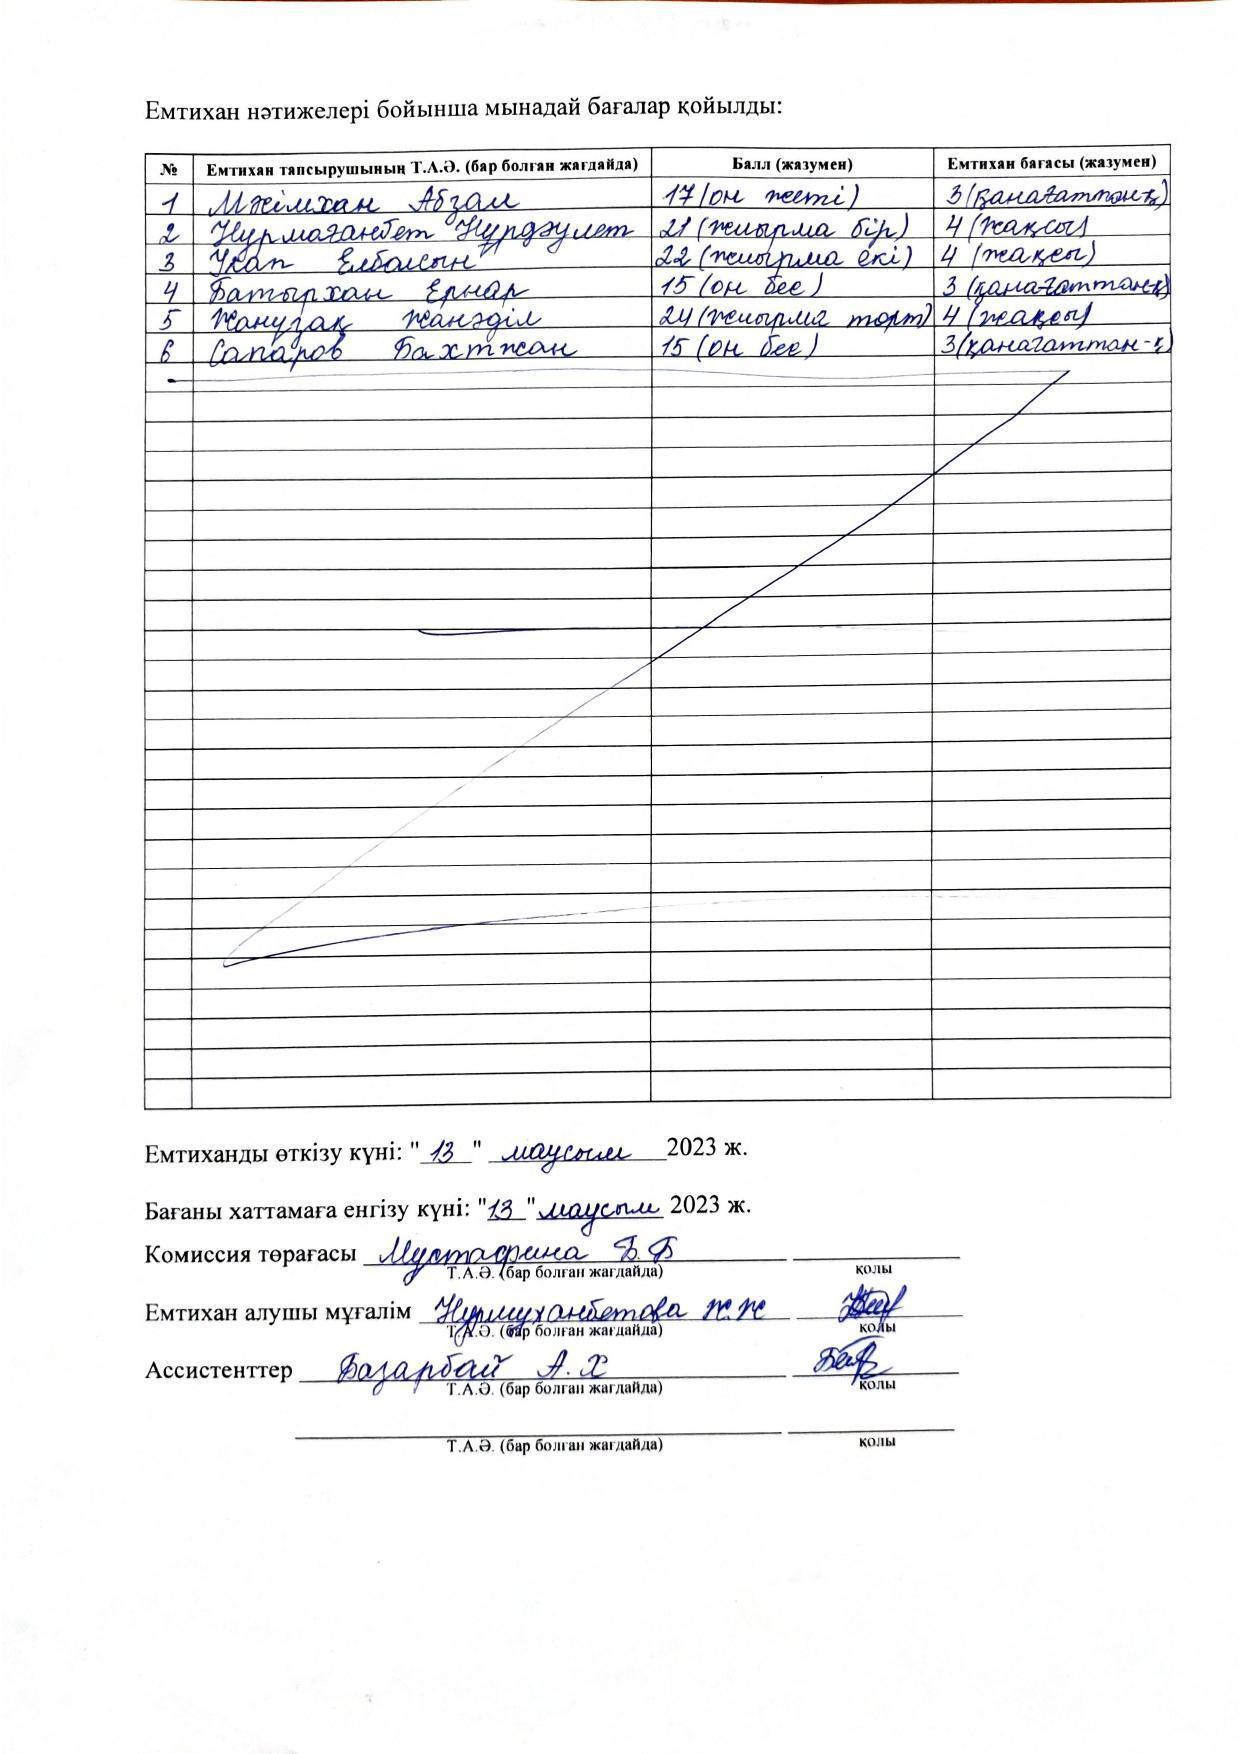 Емтихан нәтижелері бойынша мынадай бағалар қойылды:
№ Емтихан тапсырушының Т.А.Ә. (бар болған жағдайда) Балл (жазумен) Емтихан бағасы (жазумен)
1 Мәлімхан Абзал 17 (он жеті) 3 (қанағаттан-қ)
2 Нурмағанбет Нұрдәулет 21 (жиырма бір) 4 (жақсы)
3 Укап Елболсын 22 (жиырма екі) 4 (жақсы)
4 Батырхан Ернар 15 (он бес) 3 (қанағаттан-қ)
5 Жанузақ Жанәділ 24 (жиырма төрт) 4 (жақсы)
6 Сапаров Бахтжан 15 (он бес) 3 (қанағаттан-қ)
Емтиханды өткізу күні: "13" маусым 2023 ж.
Бағаны хаттамаға енгізу күні: "13" маусым 2023 ж.
Комиссия төрағасы Мустафина Б.Б
Т.А.Ә. (бар болған жағдайда) қолы
Емтихан алушы мұғалім Нурмуханбетова Ж.Ж
Т.А.Ә. (бар болған жағдайда) қолы
Ассистенттер Базарбай А.Х
Т.А.Ә. (бар болған жағдайда) қолы
Т.А.Ә. (бар болған жағдайда) қолы